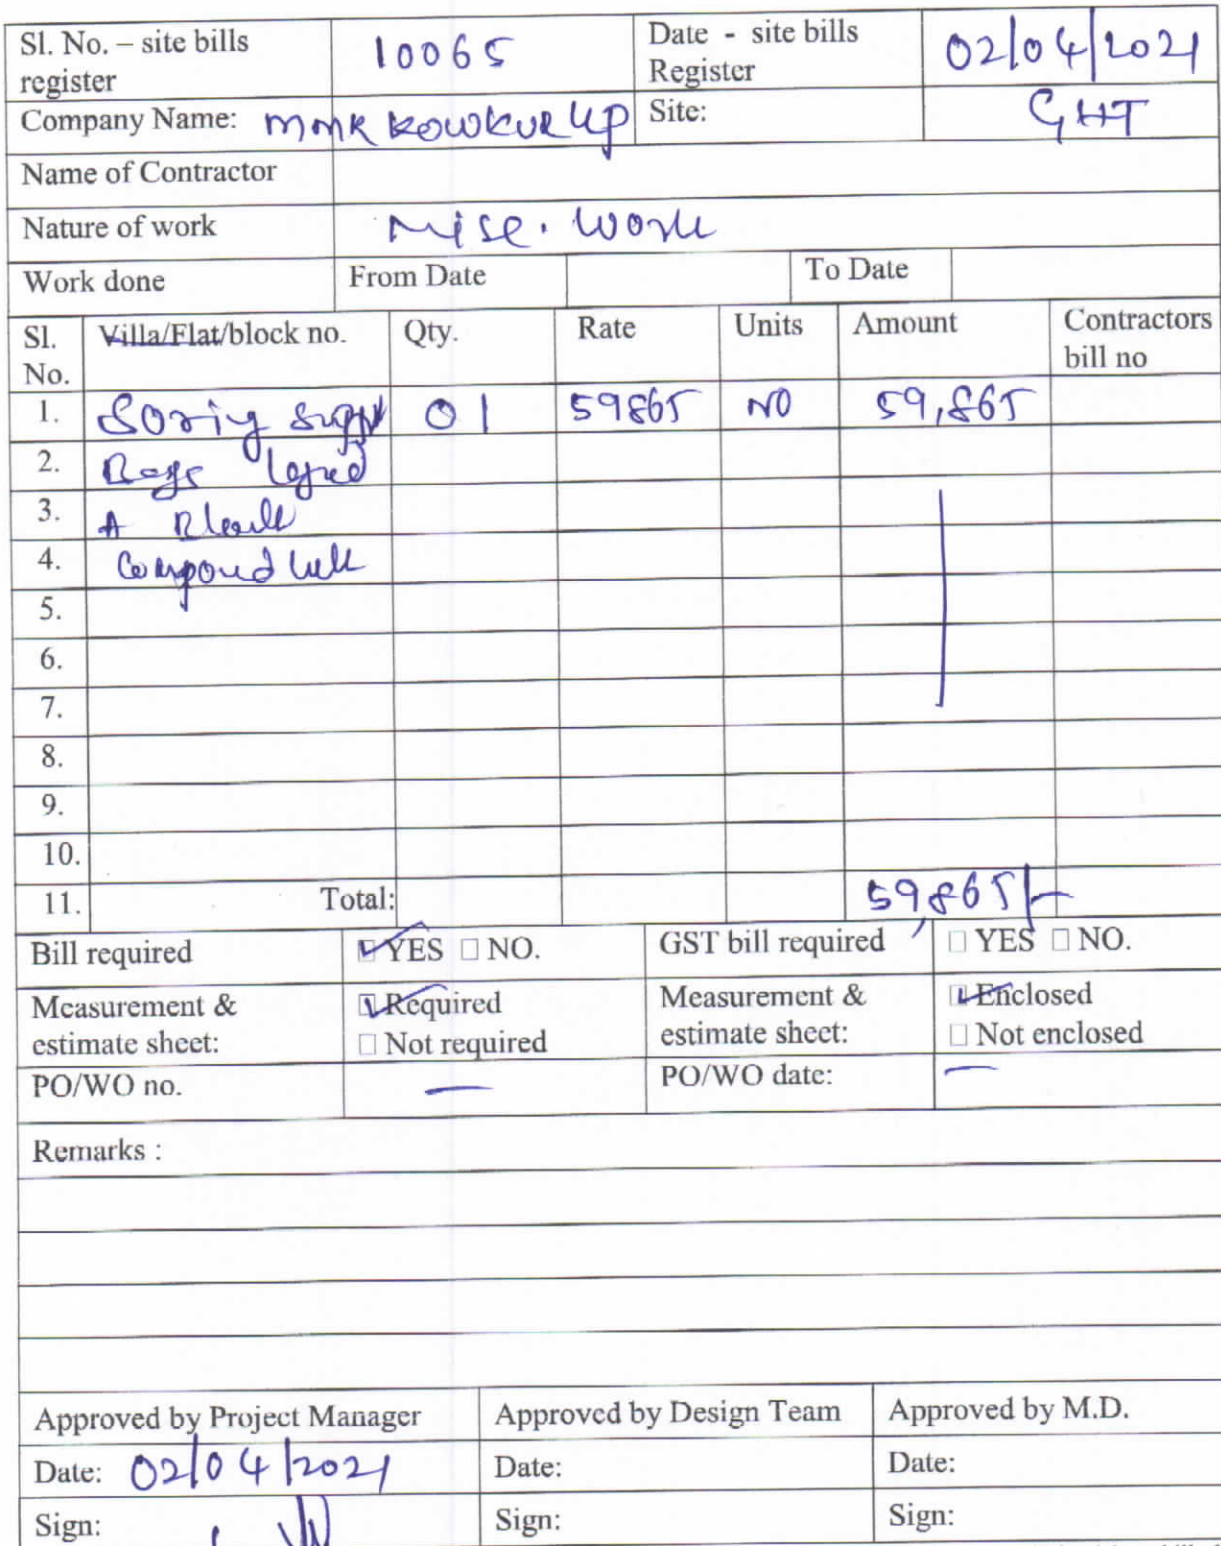 Sl. No. – site bills register 10065 Date - site bills Register 02/04/2021
Company Name: MMR KOWKUR LLP Site: GHT
Name of Contractor
Nature of work Misc. Work
Work done From Date To Date
Sl. No. Villa/Flat/block no. Qty. Rate Units Amount Contractors bill no
1. 01 59865 NO 59,865
2. Bags
3. A Block
4. Compound
5.
6.
7.
8.
9.
10.
11. Total: 59,865/-
Bill required ☑ YES ☐ NO. GST bill required ☐ YES ☐ NO.
Measurement & estimate sheet: ☑ Required ☐ Not required Measurement & estimate sheet: ☑ Enclosed ☐ Not enclosed
PO/WO no. — PO/WO date: —
Remarks :
Approved by Project Manager Approved by Design Team Approved by M.D.
Date: 02/04/2021 Date: Date:
Sign: Sign: Sign: